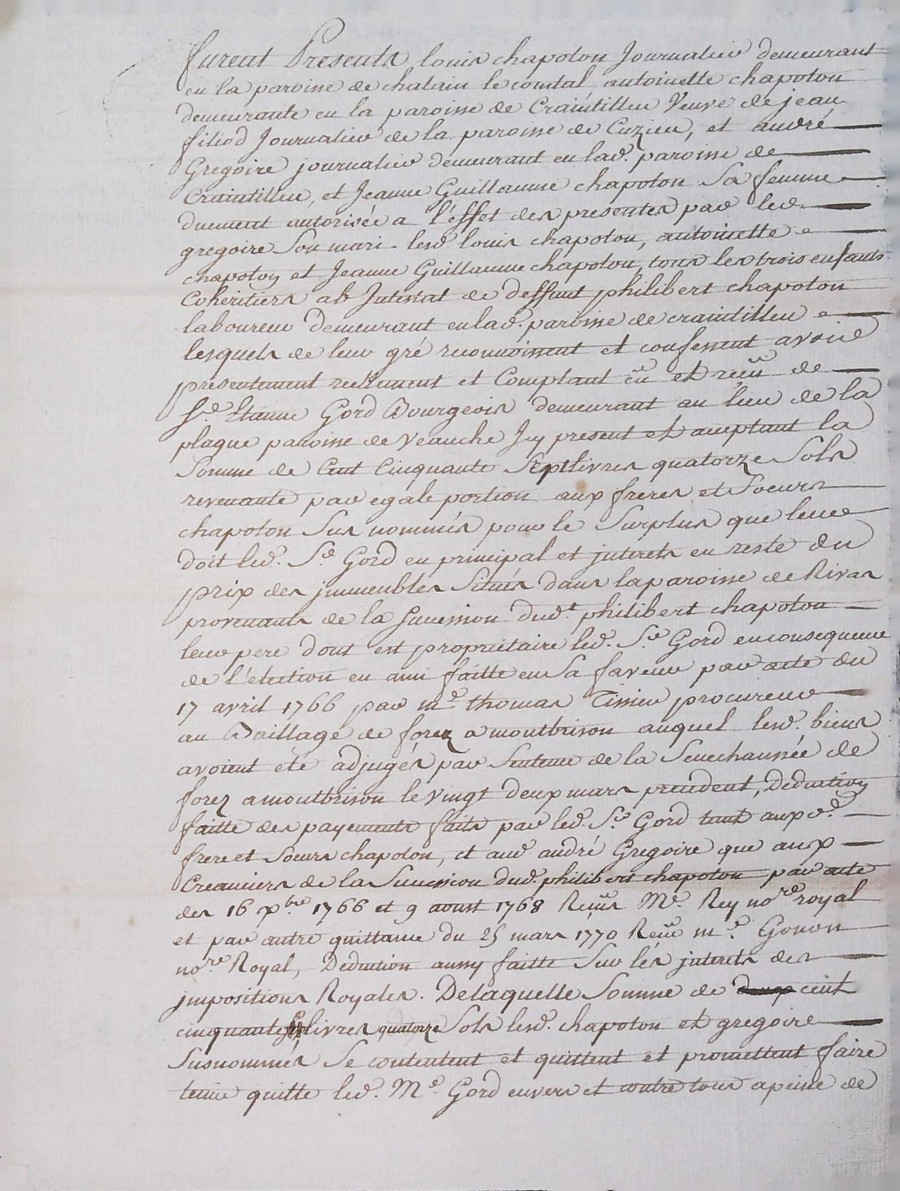 furent Presents louis chapoton Journalier demeurant
en la paroisse de chalain le comtal, antoinette chapoton
demeurante en la paroisse de Craintilleu Veuve de jean
filiod Journalier de la paroisse de Cuzieu, et andré
Gregoire journalier demeurant en lad. paroisse de
Craintilleu, et Jeanne Guillaume chapoton Sa femme
duement autorisée a l'effet des presentes par led.
gregoire Son mari - lesd. louis chapoton, antoinette
chapoton et Jeanne Guillaume chapoton, tous les trois enfants
Cohéritiers ab Intestat de deffunt philibert chapoton
laboureur demeurant en lad. paroisse de craintilleu
lesquels de leur gré reconnoissent et confessent avoir
présentement reellement et Comptant eu et reçu de
Sr. Etienne Gord Bourgeois demeurant au lieu de la
plagne paroisse de Veauche Icy present et acceptant la
Somme de Cent Cinquante Sept livres quatorze Sols
revenante par egale portion aux freres et Soeurs
chapoton Sus nommés pour le Surplus que leur
doit led. Sr. Gord en principal et jnterets en reste du
prix des jmmeubles Situés dans la paroisse de Rivas
provenants de la Succession dud.t philibert chapoton
leur pere dont est propriétaire led. Sr. Gord en consequence
de l'election en ami faitte en Sa faveur par acte du
17 avril 1766 par me. thomas Tissieu procureur
au Baillage de forez a montbrison auquel lesd. biens
avoient été adjugés par Sentence de la Senechaussée de
forez a montbrison le vingt deux mars precedent, Deduction
faitte des payements faits par led. Sr. Gord tant auxd.
frere et Soeurs chapoton, et aud. andré Gregoire que aux
Creanciers de la Succession dud. philibert chapoton par acte
des 16 xbre 1766 et 9 aoust 1768 Reçus Me. Rey nore royal
et par autre quittance du 25 mars 1770 Reçue me. Gonon
nore Royal, Deduction aussy faitte Sur les jnterets des
jmpositions Royales. De laquelle Somme de cent
cinquante sept livres quatorze Sols lesd. chapoton et gregoire
Susnommés Se contentent et quittent et promettent faire
tenir quitte led. Me. Gord envers et contre tous a peine de